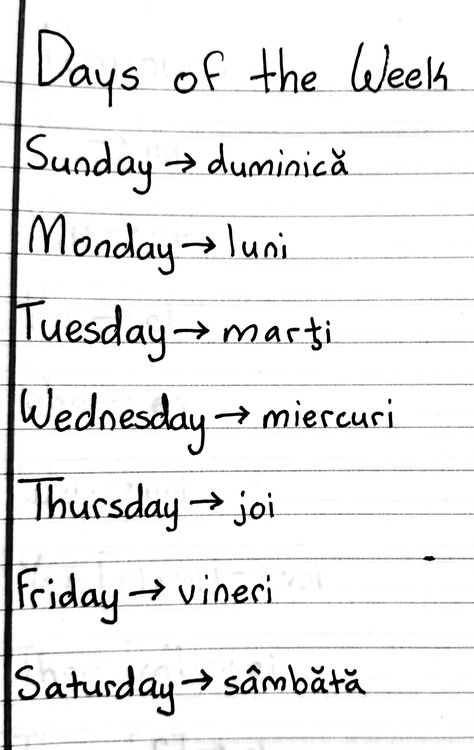 Days of the Week
Sunday → duminică
Monday → luni
Tuesday → marţi
Wednesday → miercuri
Thursday → joi
Friday → vineri
Saturday → sâmbătă